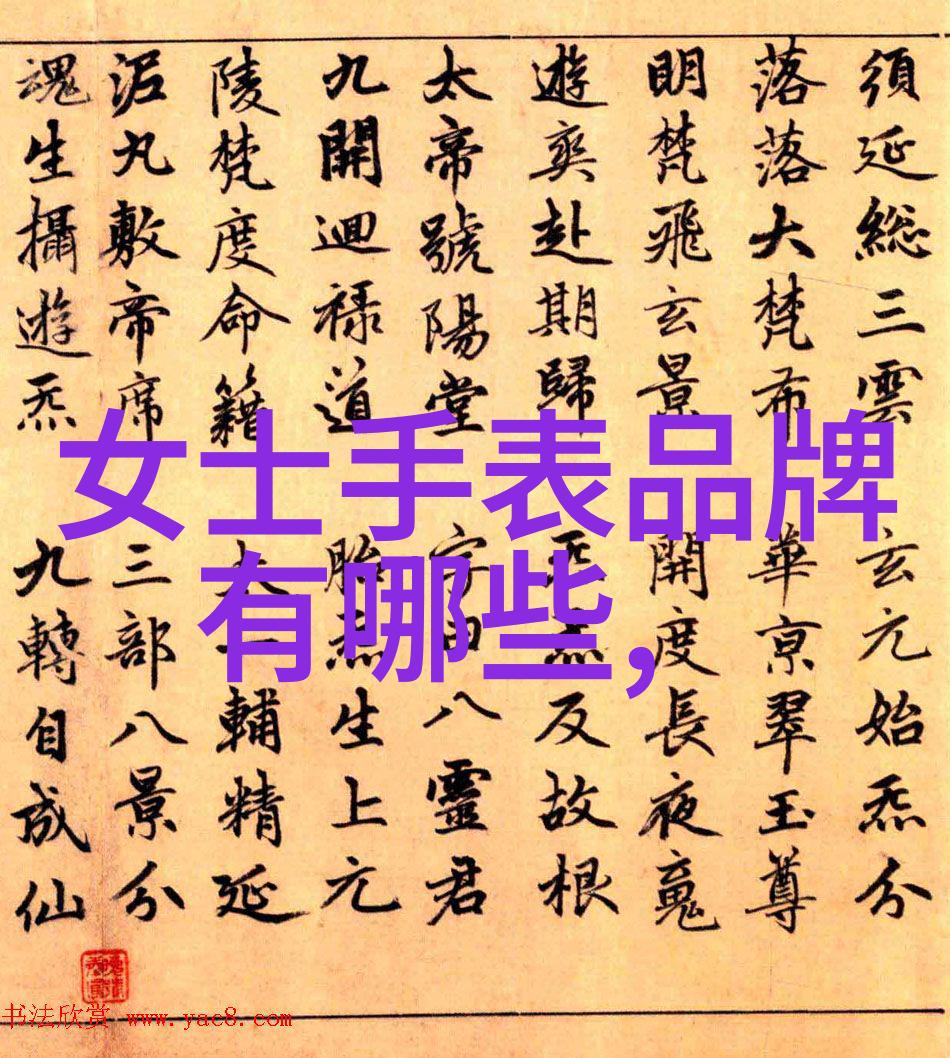 須延総三雲 玄元始炁分
落落大梵布 華京翠玉尊
明梵飛玄景 開度長夜魂
遊爽赴期歸 反故根
太帝號陽堂 字 八靈君
九開迴祿道 胎 生上元
陵梵度命籍 太一輔精延
泥丸敷帝席 三部八景分
魂生攝遊炁 九轉自成仙
女士手表品牌
有哪些,
书法欣赏 www.yac8.com